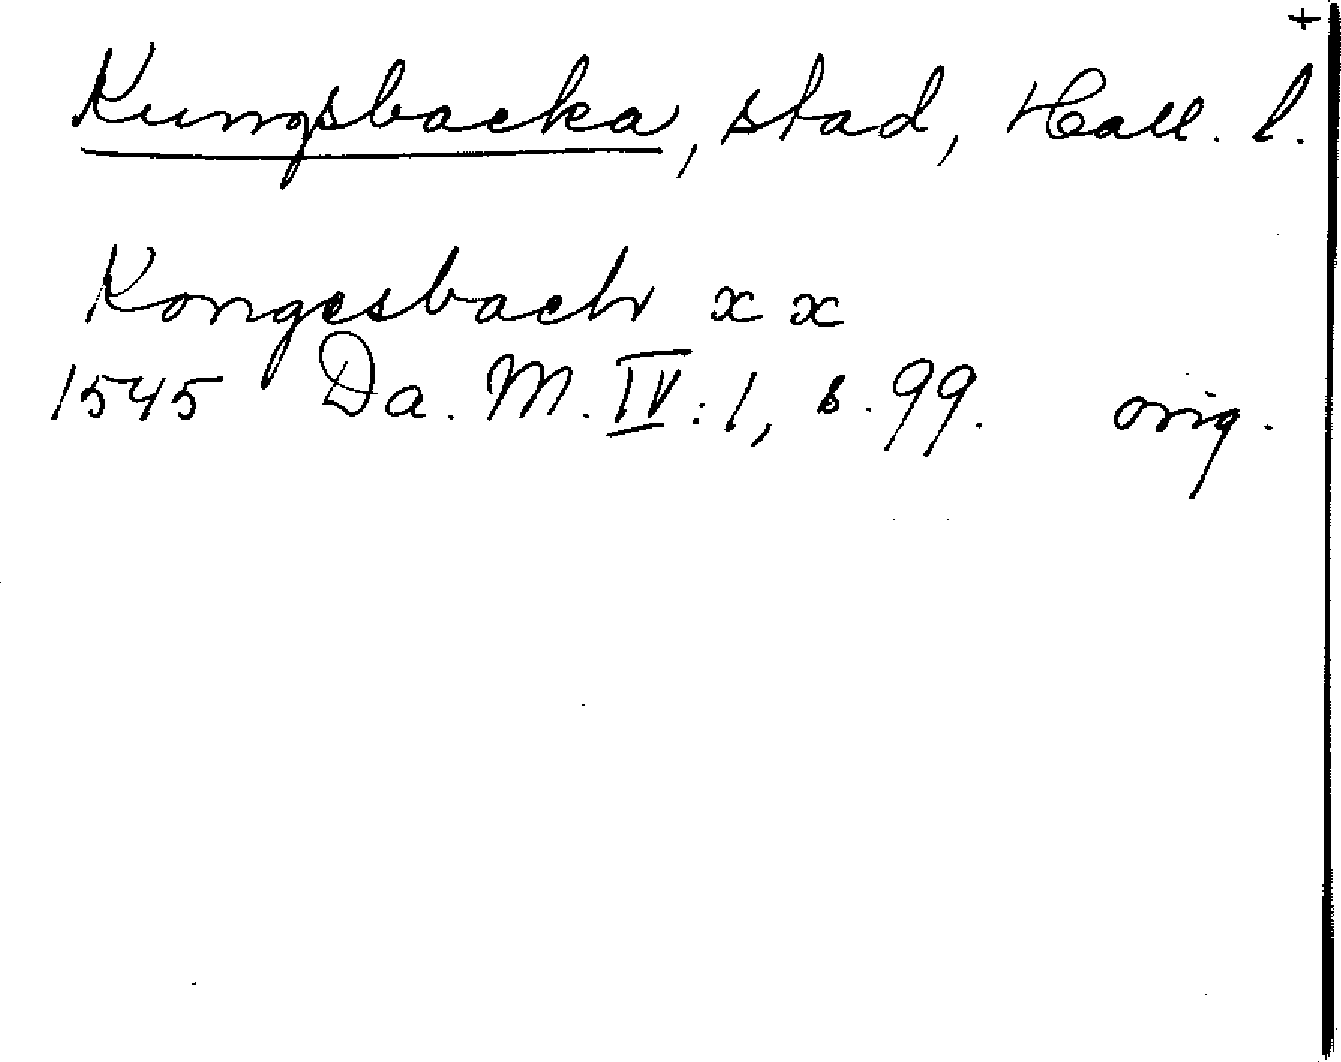 +
Kungsbacka, stad, Hall. l.
Kongesbach x x
1545 Da. M. IV:1, s. 99. orig.